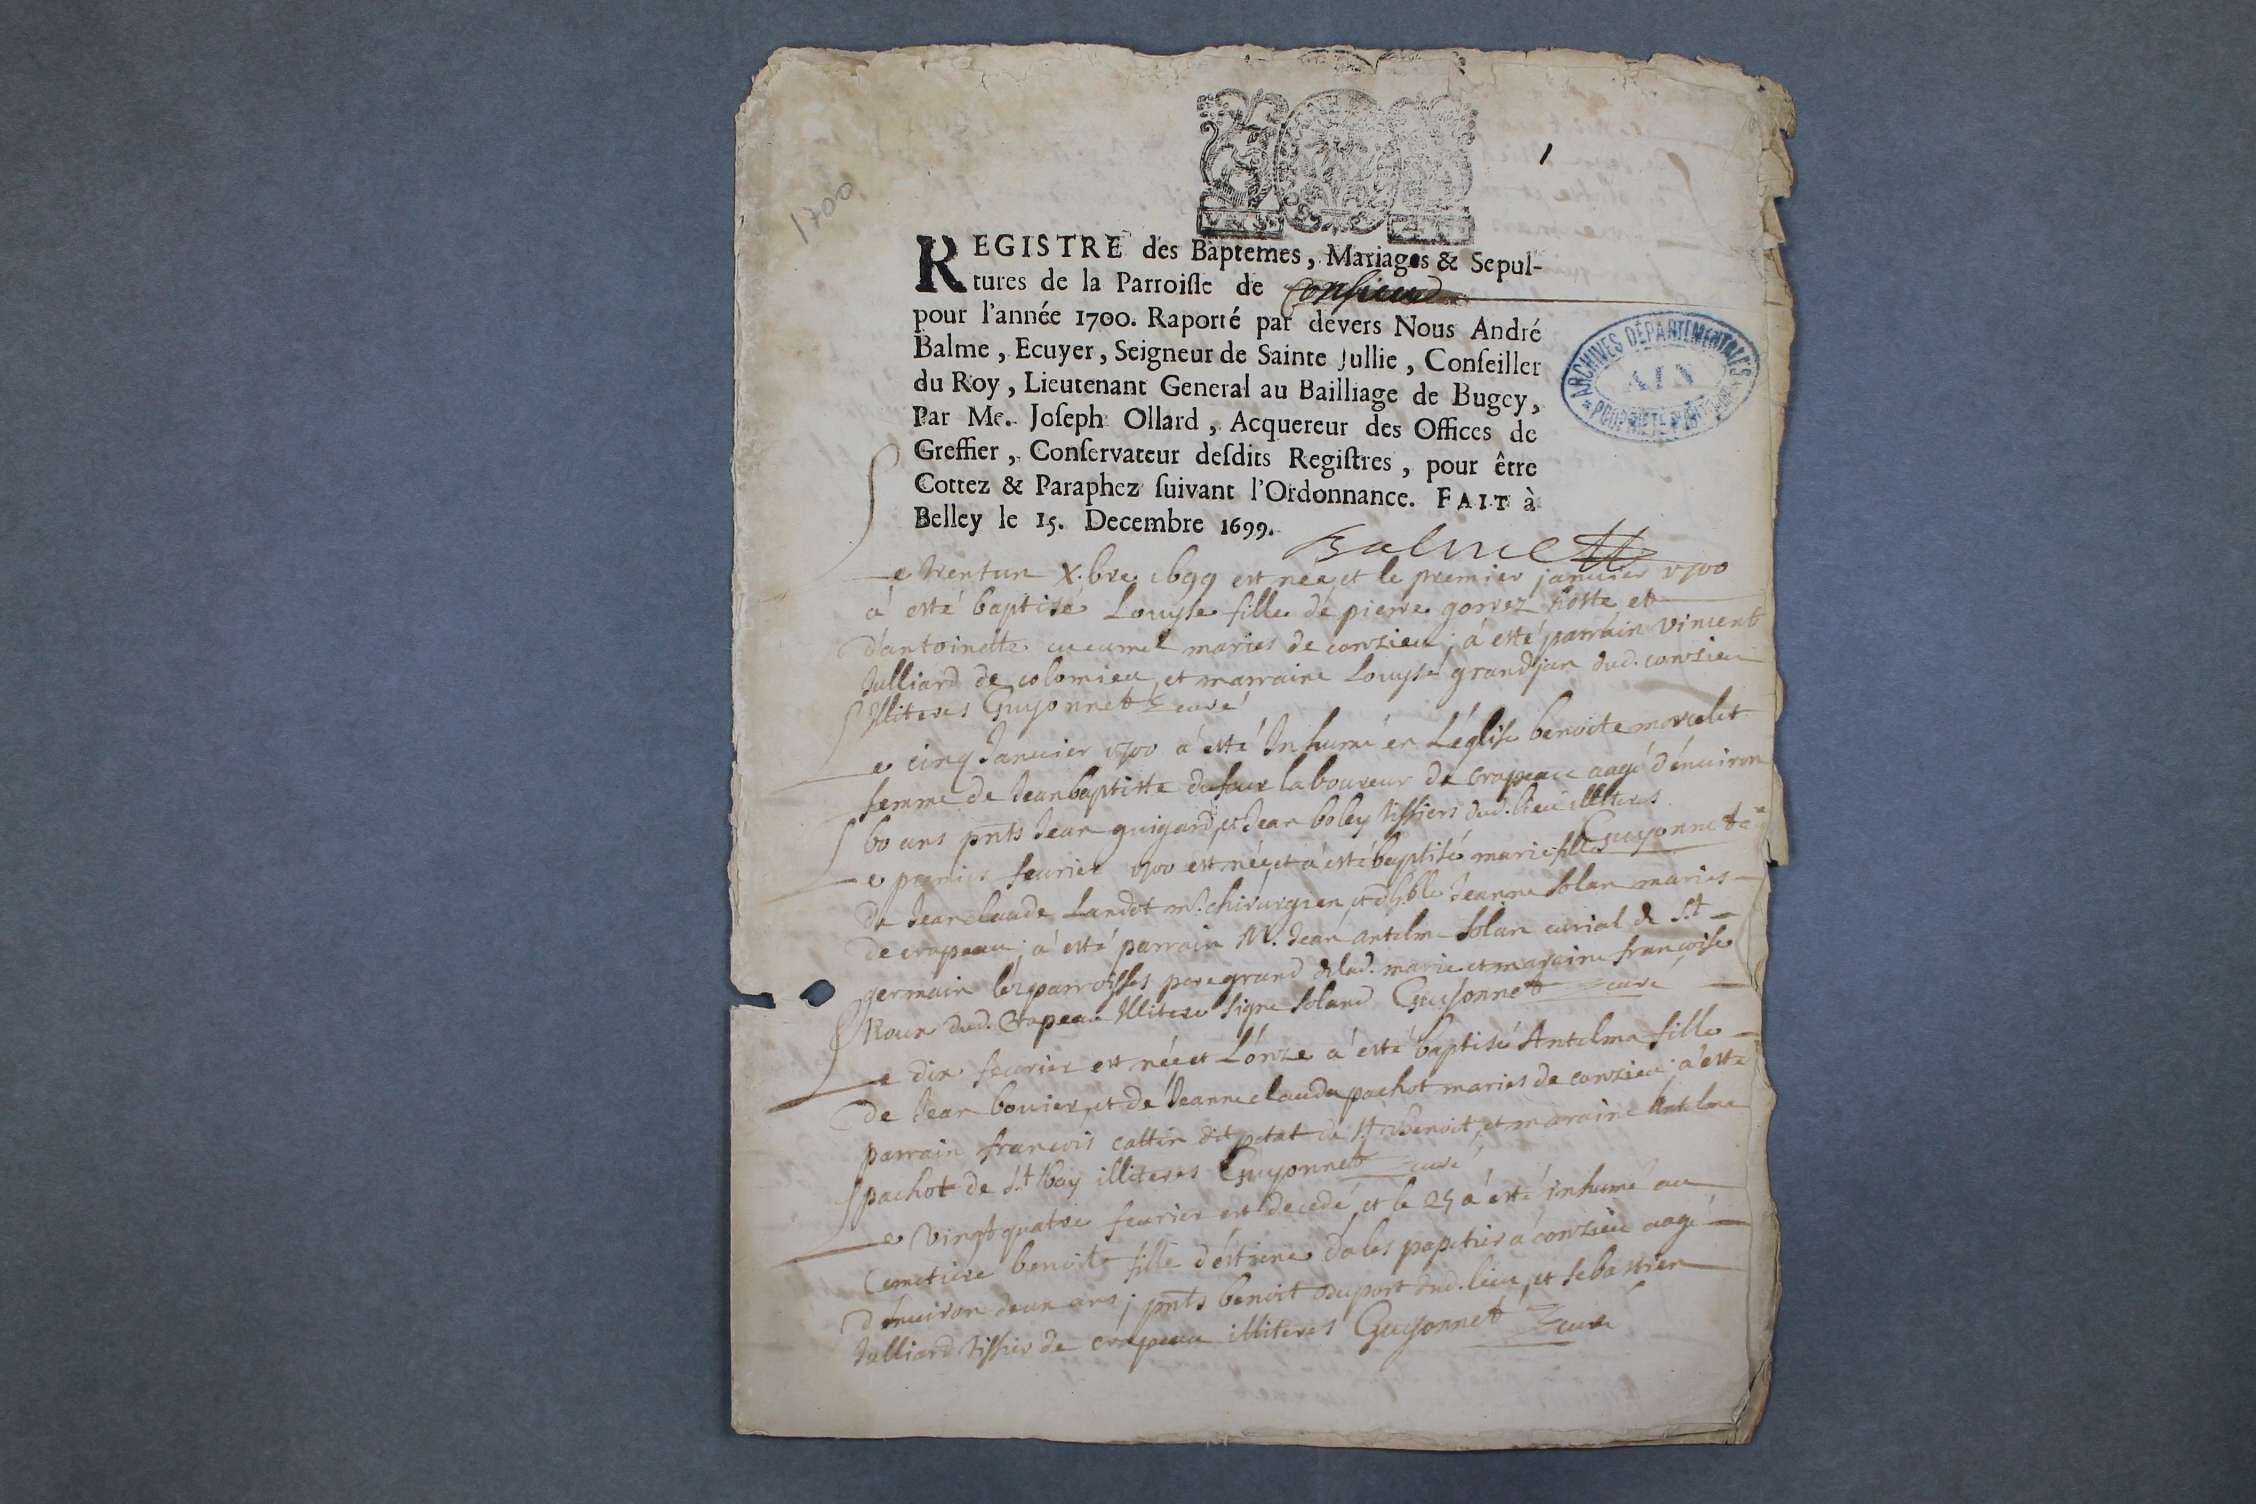 1
1700
REGISTRE des Baptemes, Mariages & Sepul-
tures de la Parroisse de Consieu
pour l'année 1700. Raporté par devers Nous André
Balme, Ecuyer, Seigneur de Sainte Jullie, Conseiller
du Roy, Lieutenant General au Bailliage de Bugey,
Par Me. Joseph Ollard, Acquereur des Offices de
Greffier, Conservateur desdits Registres, pour être
Cottez & Paraphez suivant l'Ordonnance. FAIT à
Belley le 15. Decembre 1699.
ARCHIVES DÉPARTEMENTALES
AIN
PROPRIÉTÉ PUBLIQUE
Balme
Le trentun X.bre 1699 est née et le premier janvier 1700
à esté baptisé Louyse fille de pierre gorrez hoste et
d'antoinette cucumel maries de conzieu; à esté parrain vincent
Julliard de colomieu, et marraine Louyse grandjan dud. conzieu
Illiteres Guyonnet curé
Le cinq Janvier 1700 à esté Inhumé en L'église benoite morcelet
femme de Jean baptiste dufour laboureur de Crapeau aagé d'environ
60 ans pnts Jean guigard, et Jean boley tissiers dud. lieu illiteres
Guyonnet
Le premier fevrier 1700 est née, et à esté baptisé marie fille
de Jean claude Landot mr. chirurgien, et d'h.ble Jeanne Solan maries
de crapeau; à esté parrain Mr. Jean Antelme Solan curial de St.
germain les parroisses pere grand de lad. marie et maraine françoise
Roux dud. Crapeau Illitere signe Soland Guyonnet curé
Le dix fevrier est née et L'onze à esté baptisé Antelma fille
de Jean bovier, et de Jeanne clauda pachot maries de conzieu; à esté
parrain françois cattin dit petat de St. benoit, et marraine Antelma
pachot de St. boy illiteres Guyonnet curé
Le vingt quatre fevrier est decedé, et le 25 à esté inhumé au
Cemetiere benoite fille d'estiene dales papetier à conzieu aagé
d'environ deux ans; pnts benoit duport dud. lieu, et sebastien
Julliard tissier de crapeau illiteres Guyonnet curé